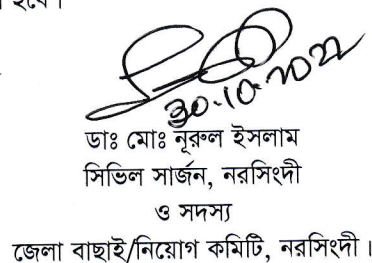 হবে।
30.10.2022
ডাঃ মোঃ নূরুল ইসলাম
সিভিল সার্জন, নরসিংদী
ও সদস্য
জেলা বাছাই/নিয়োগ কমিটি, নরসিংদী।